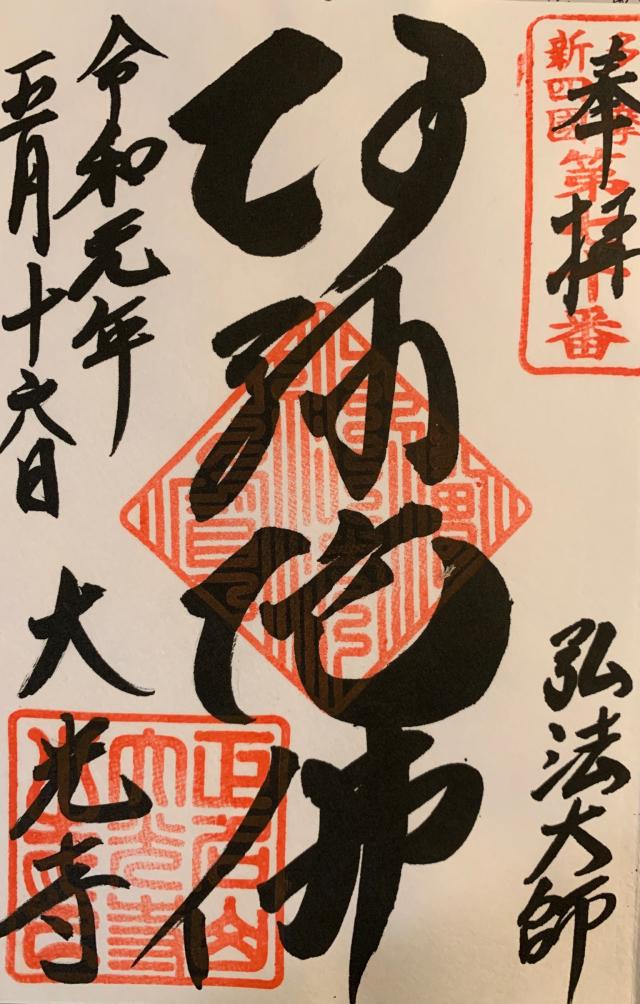 奉拝
新四國
番
弘法大師
阿弥陀佛
令和元年
五月十六日
大光寺
大光寺